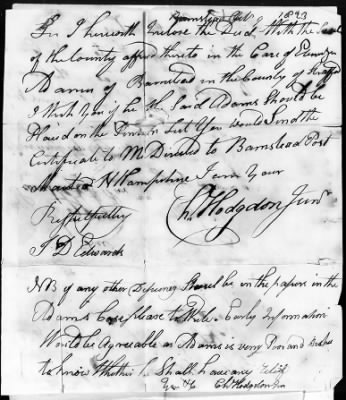 Barnstead Oct 1823
Sir I herewith Inclose the Deed With the Seal
of the County affixed thereto in the Case of
Adams of Barnstead in the County of Strafford
I Wish You if he the Said Adams Should be
Placed on the Pension List You Would Send the
Certificate to Me Directed to Barnstead Post
Master N Hampshire I am Your
Respectfully Ch Hodgdon Junr
J L Edwards
NB if any other Defciency Should be in the papers in the
Adams Case please to Write Early Information
Would be Agreeable as Adams is very Poor and wishes
to know Whether he Shall have any Relief
Yours &c Ch Hodgdon Jn